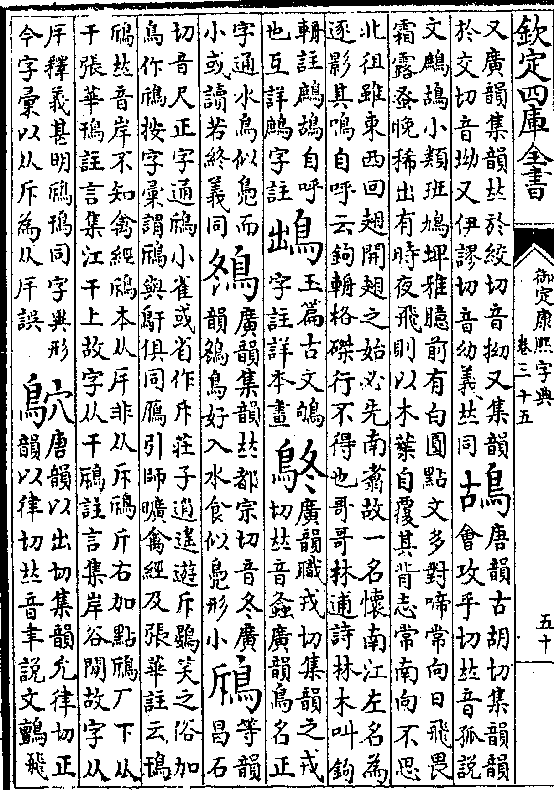 欽定四庫全書
御定康熙字典
卷三十五
五十
又廣韻集韻𠀤於絞切音拗又集韻
於交切音坳又伊謬切音幼義𠀤同
鴣
唐韻古胡切集韻韻
會攻乎切𠀤音孤說
文鷓鴣小類班鳩埤雅臆前有白圓點文多對啼常向日飛畏
霜露蚤晚稀出有時夜飛則以木葉自覆其背志常南向不思
北徂雖東西回翅開翅之始必先南翥故一名懷南江左名為
逐影其鳴自呼云鉤輈格磔行不得也哥哥林逋詩林木叫鉤
輈註鷓鴣自呼
也互詳鷓字註
䳕
玉篇古文
字註詳本畫
廣韻職戎切集韻之戎
切𠀤音螽廣韻鳥名正
字通水鳥似鳧而
小或讀若終義同
鴤
廣韻集韻𠀤都宗切音冬廣
韻鴤鳥好入水食似鳧形小
等韻
昌石
切音尺正字通小雀或省作斥莊子逍遙遊斥鷃笑之俗加
鳥作按字彙謂與鳱俱同鴈引師曠禽經及張華註云鳱
𠀤音岸不知禽經本从厈非从斥斤右加點厂下从
干張華鳱註言集江干上故字从干註言集岸谷間故字从
厈釋義甚明鳱同字典形
今字彙以从斥為从厈誤
鴥
唐韻以出切集韻允律切正
韻以律切𠀤音聿說文鸇飛